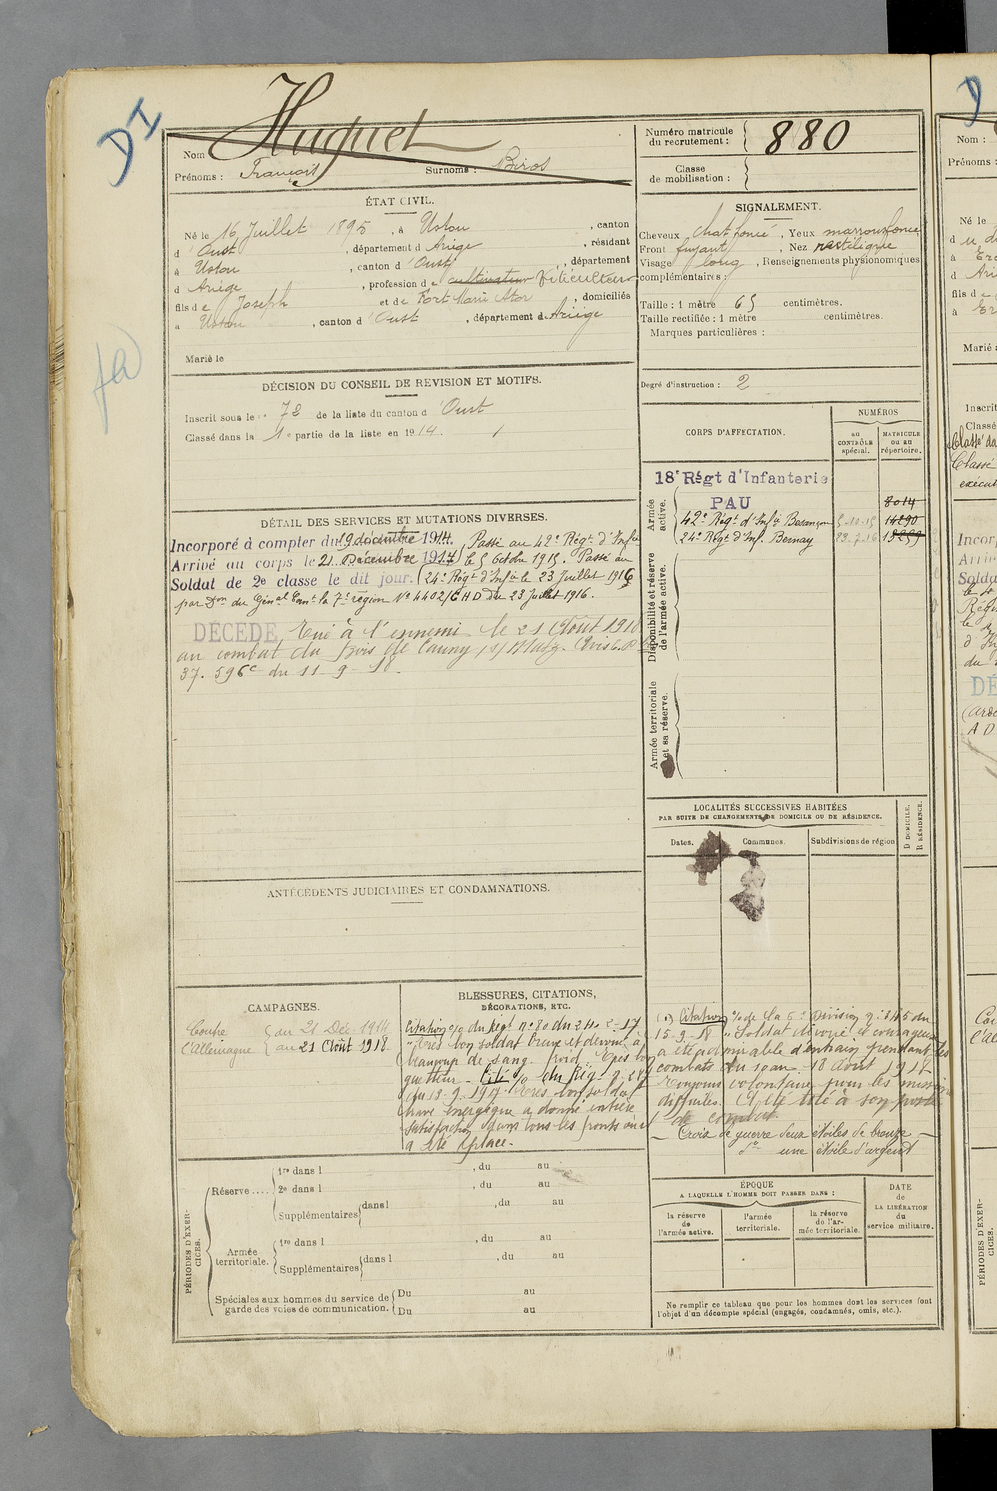 DI
Nom Huguet
Prénoms : François Surnoms : Biros
Numéro matricule du recrutement : 880
Classe de mobilisation :
ÉTAT CIVIL.
Né le 16 Juillet 1895, à Ustou, canton
d'Oust, département d Ariège, résidant
à Ustou, canton d'Oust, département
d Ariège, profession de cultivateur Viticulteur
fils de Joseph et de Fort Marie, domiciliés
à Ustou, canton d'Oust, département de Ariège
Marié le
SIGNALEMENT.
Cheveux chat foncé, Yeux marron foncé
Front fuyant, Nez rectiligne
Visage long, Renseignements physionomiques
complémentaires :
Taille : 1 mètre 65 centimètres.
Taille rectifiée : 1 mètre centimètres.
Marques particulières :
Degré d'instruction : 2
DÉCISION DU CONSEIL DE REVISION ET MOTIFS.
Inscrit sous le n° 72 de la liste du canton d'Oust
Classé dans la 1e partie de la liste en 1914.
CORPS D'AFFECTATION.
NUMÉROS
au CONTRÔLE spécial.
MATRICULE OU AU répertoire.
Armée active.
18e Régt d'Infanterie
PAU 8014
42e Régt d'Infie Besançon 5-10-15 14290
24e Régt d'Inf. Bernay 23-7-16
Disponibilité et réserve de l'armée active.
Armée territoriale et sa réserve.
DÉTAIL DES SERVICES ET MUTATIONS DIVERSES.
Incorporé à compter du 19 décembre 1914. Passé au 42e Régt d'Infie
Arrivé au corps le 21 Décembre 1914 le 5 Octobre 1915. Passé au
Soldat de 2e classe le dit jour. 24e Régt d'Infie le 23 Juillet 1916
par Don du Génal Comt la 7e région No 4402/6 HD du 23 Juillet 1916.
DÉCÉDÉ Tué à l'ennemi le 21 Août 1918
au combat du bois de
37.596c du 11-9-18.
LOCALITÉS SUCCESSIVES HABITÉES
PAR SUITE DE CHANGEMENTS DE DOMICILE OU DE RÉSIDENCE.
Dates. Communes. Subdivisions de région
D DOMICILE.
R RÉSIDENCE.
ANTÉCÉDENTS JUDICIAIRES ET CONDAMNATIONS.
CAMPAGNES.
Contre l'Allemagne
du 21 Déc. 1914
au 21 Août 1918
BLESSURES, CITATIONS,
DÉCORATIONS, ETC.
Citation o/o du Régt no 80 du 2-17
"Très bon soldat brave et dévoué a
beaucoup de sang-froid. Très bon
guetteur - Cité o/o du Rég.
du 18-9-1917 "Très bon soldat
brave énergique a donné entière
satisfaction dans tous les fronts où il
a été placé.
Citation o/o de la 6e Division no 345 du
15-9-18 "Soldat dévoué et courageux
a été admirable d'entrain pendant les
combats du 18 Août 1918
Toujours volontaire pour les missions
difficiles. A été tué à son poste
de combat.
Croix de guerre deux étoiles de bronze
do une étoile d'argent
PÉRIODES D'EXERCICES.
Réserve....
1re dans l , du au
2e dans l , du au
Supplémentaires dans l , du au
Armée territoriale.
1re dans l , du au
Supplémentaires dans l , du au
Spéciales aux hommes du service de garde des voies de communication.
Du au
Du au
ÉPOQUE
A LAQUELLE L'HOMME DOIT PASSER DANS :
la réserve de l'armée active.
l'armée territoriale.
la réserve de l'armée territoriale.
DATE de LA LIBÉRATION du service militaire.
Ne remplir ce tableau que pour les hommes dont les services font
l'objet d'un décompte spécial (engagés, condamnés, omis, etc.).